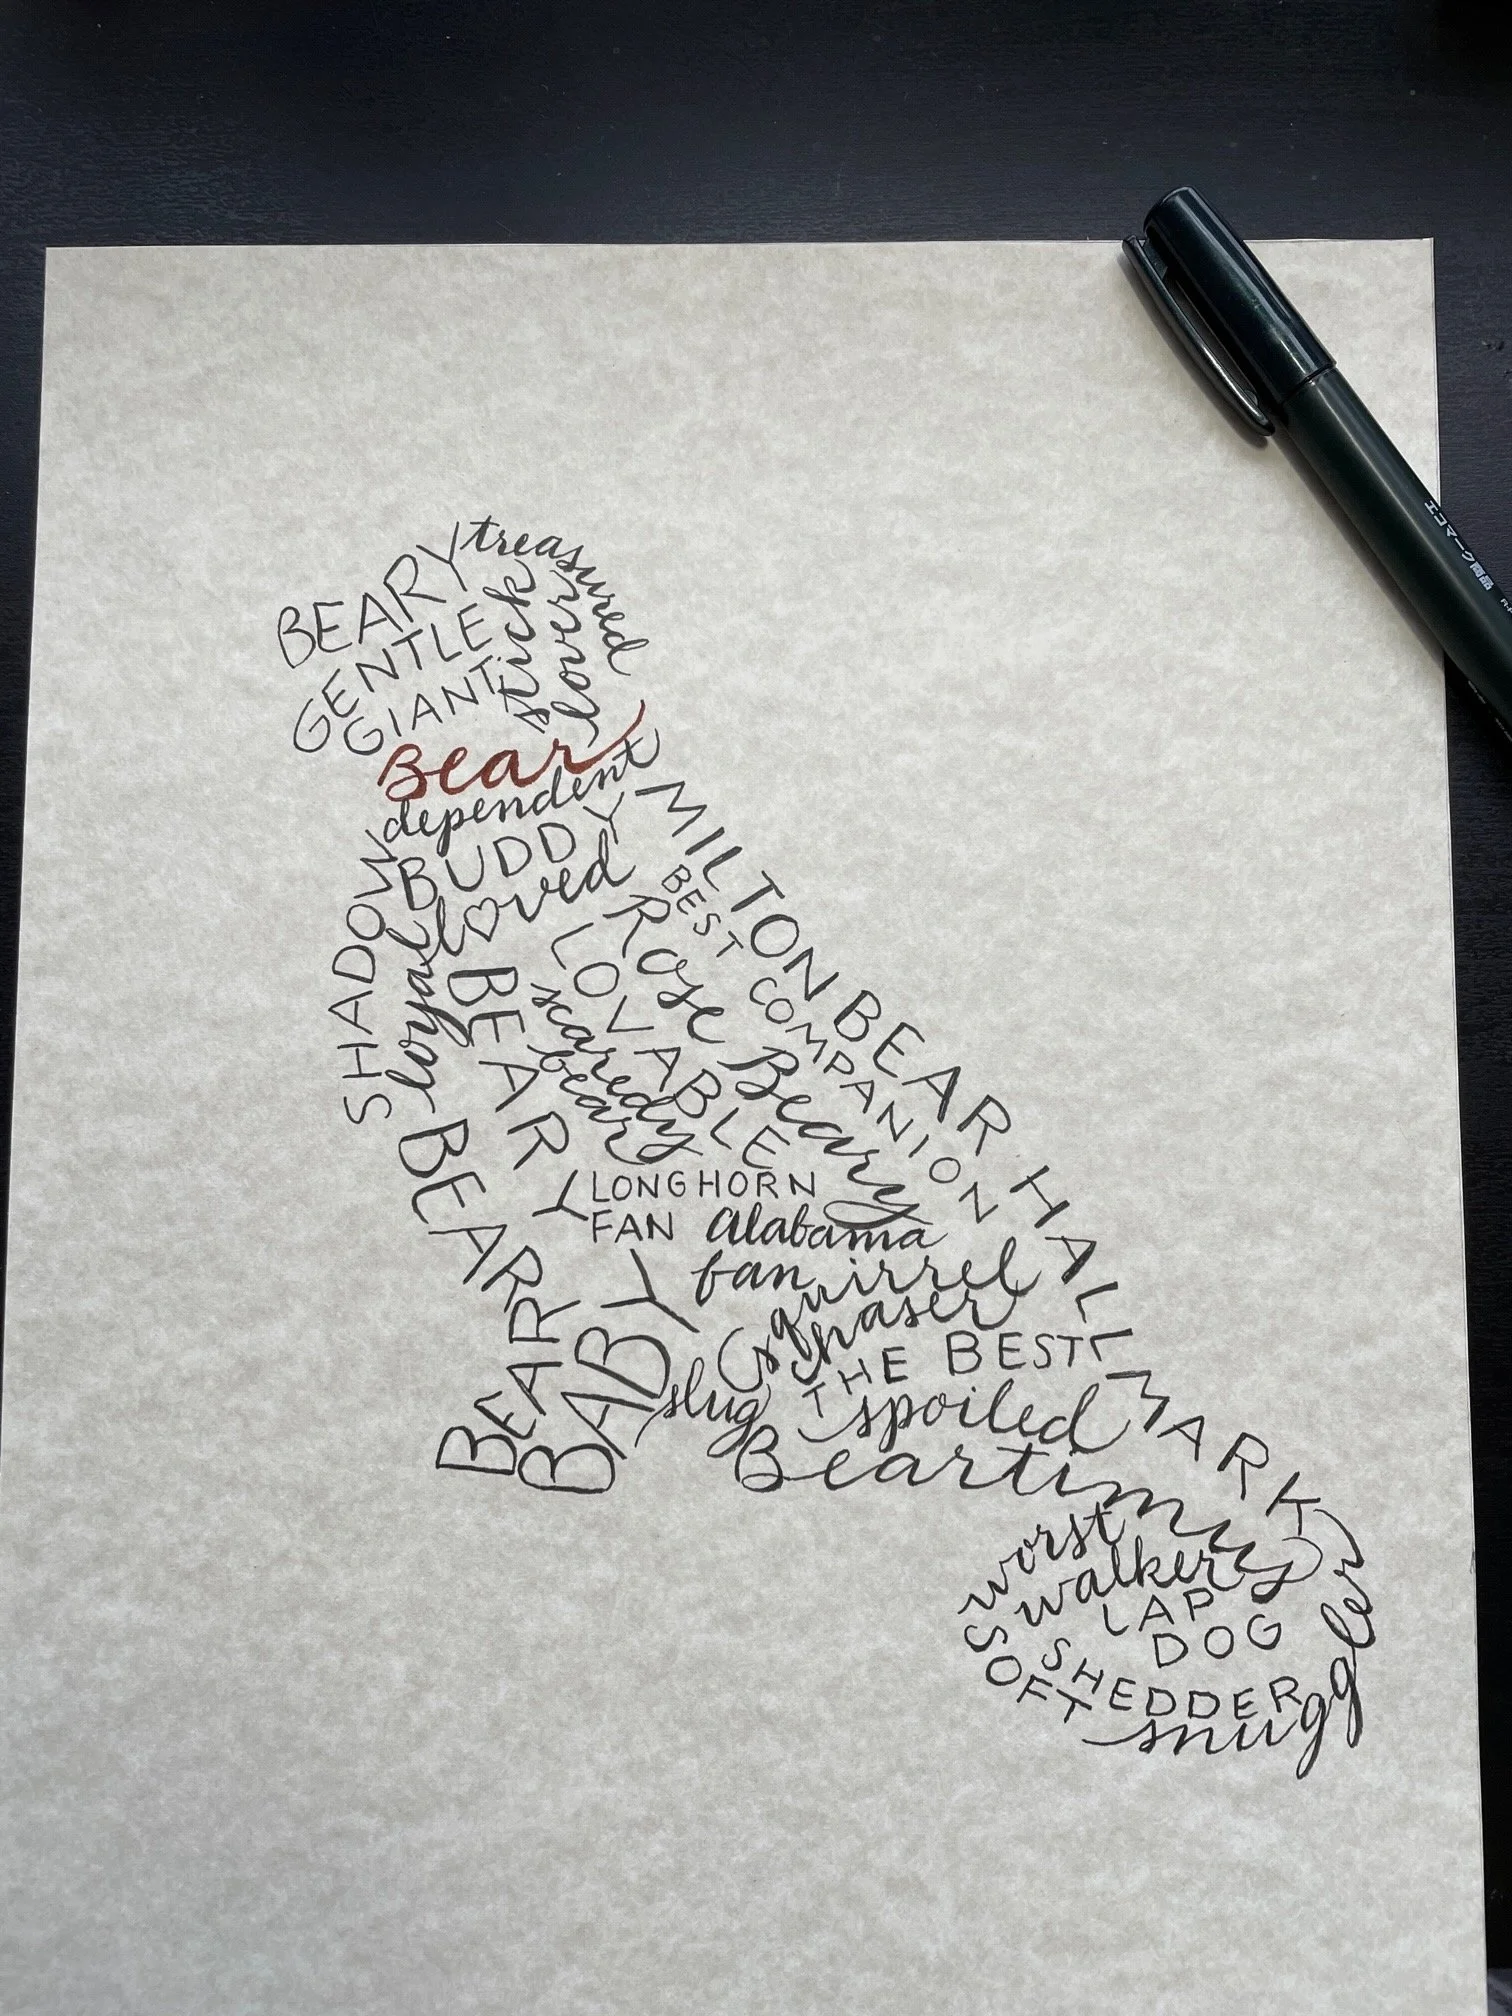 BEARY
treasured
GENTLE
GIANT
stick
lover
Bear
dependent
BUDDY
loved
SHADOW
loyal
MILTON BEAR HALLMARK
BEST COMPANION
Rose Beary
LOVABLE
scaredy
bear
BEARY
BEAR
LONGHORN
FAN
alabama
fan
squirrel
chaser
BEAR
BABY
slug
G
THE BEST
spoiled
Beartimus
worst
walker
LAP
DOG
SOFT
SHEDDER
snuggler
エコマーク商品